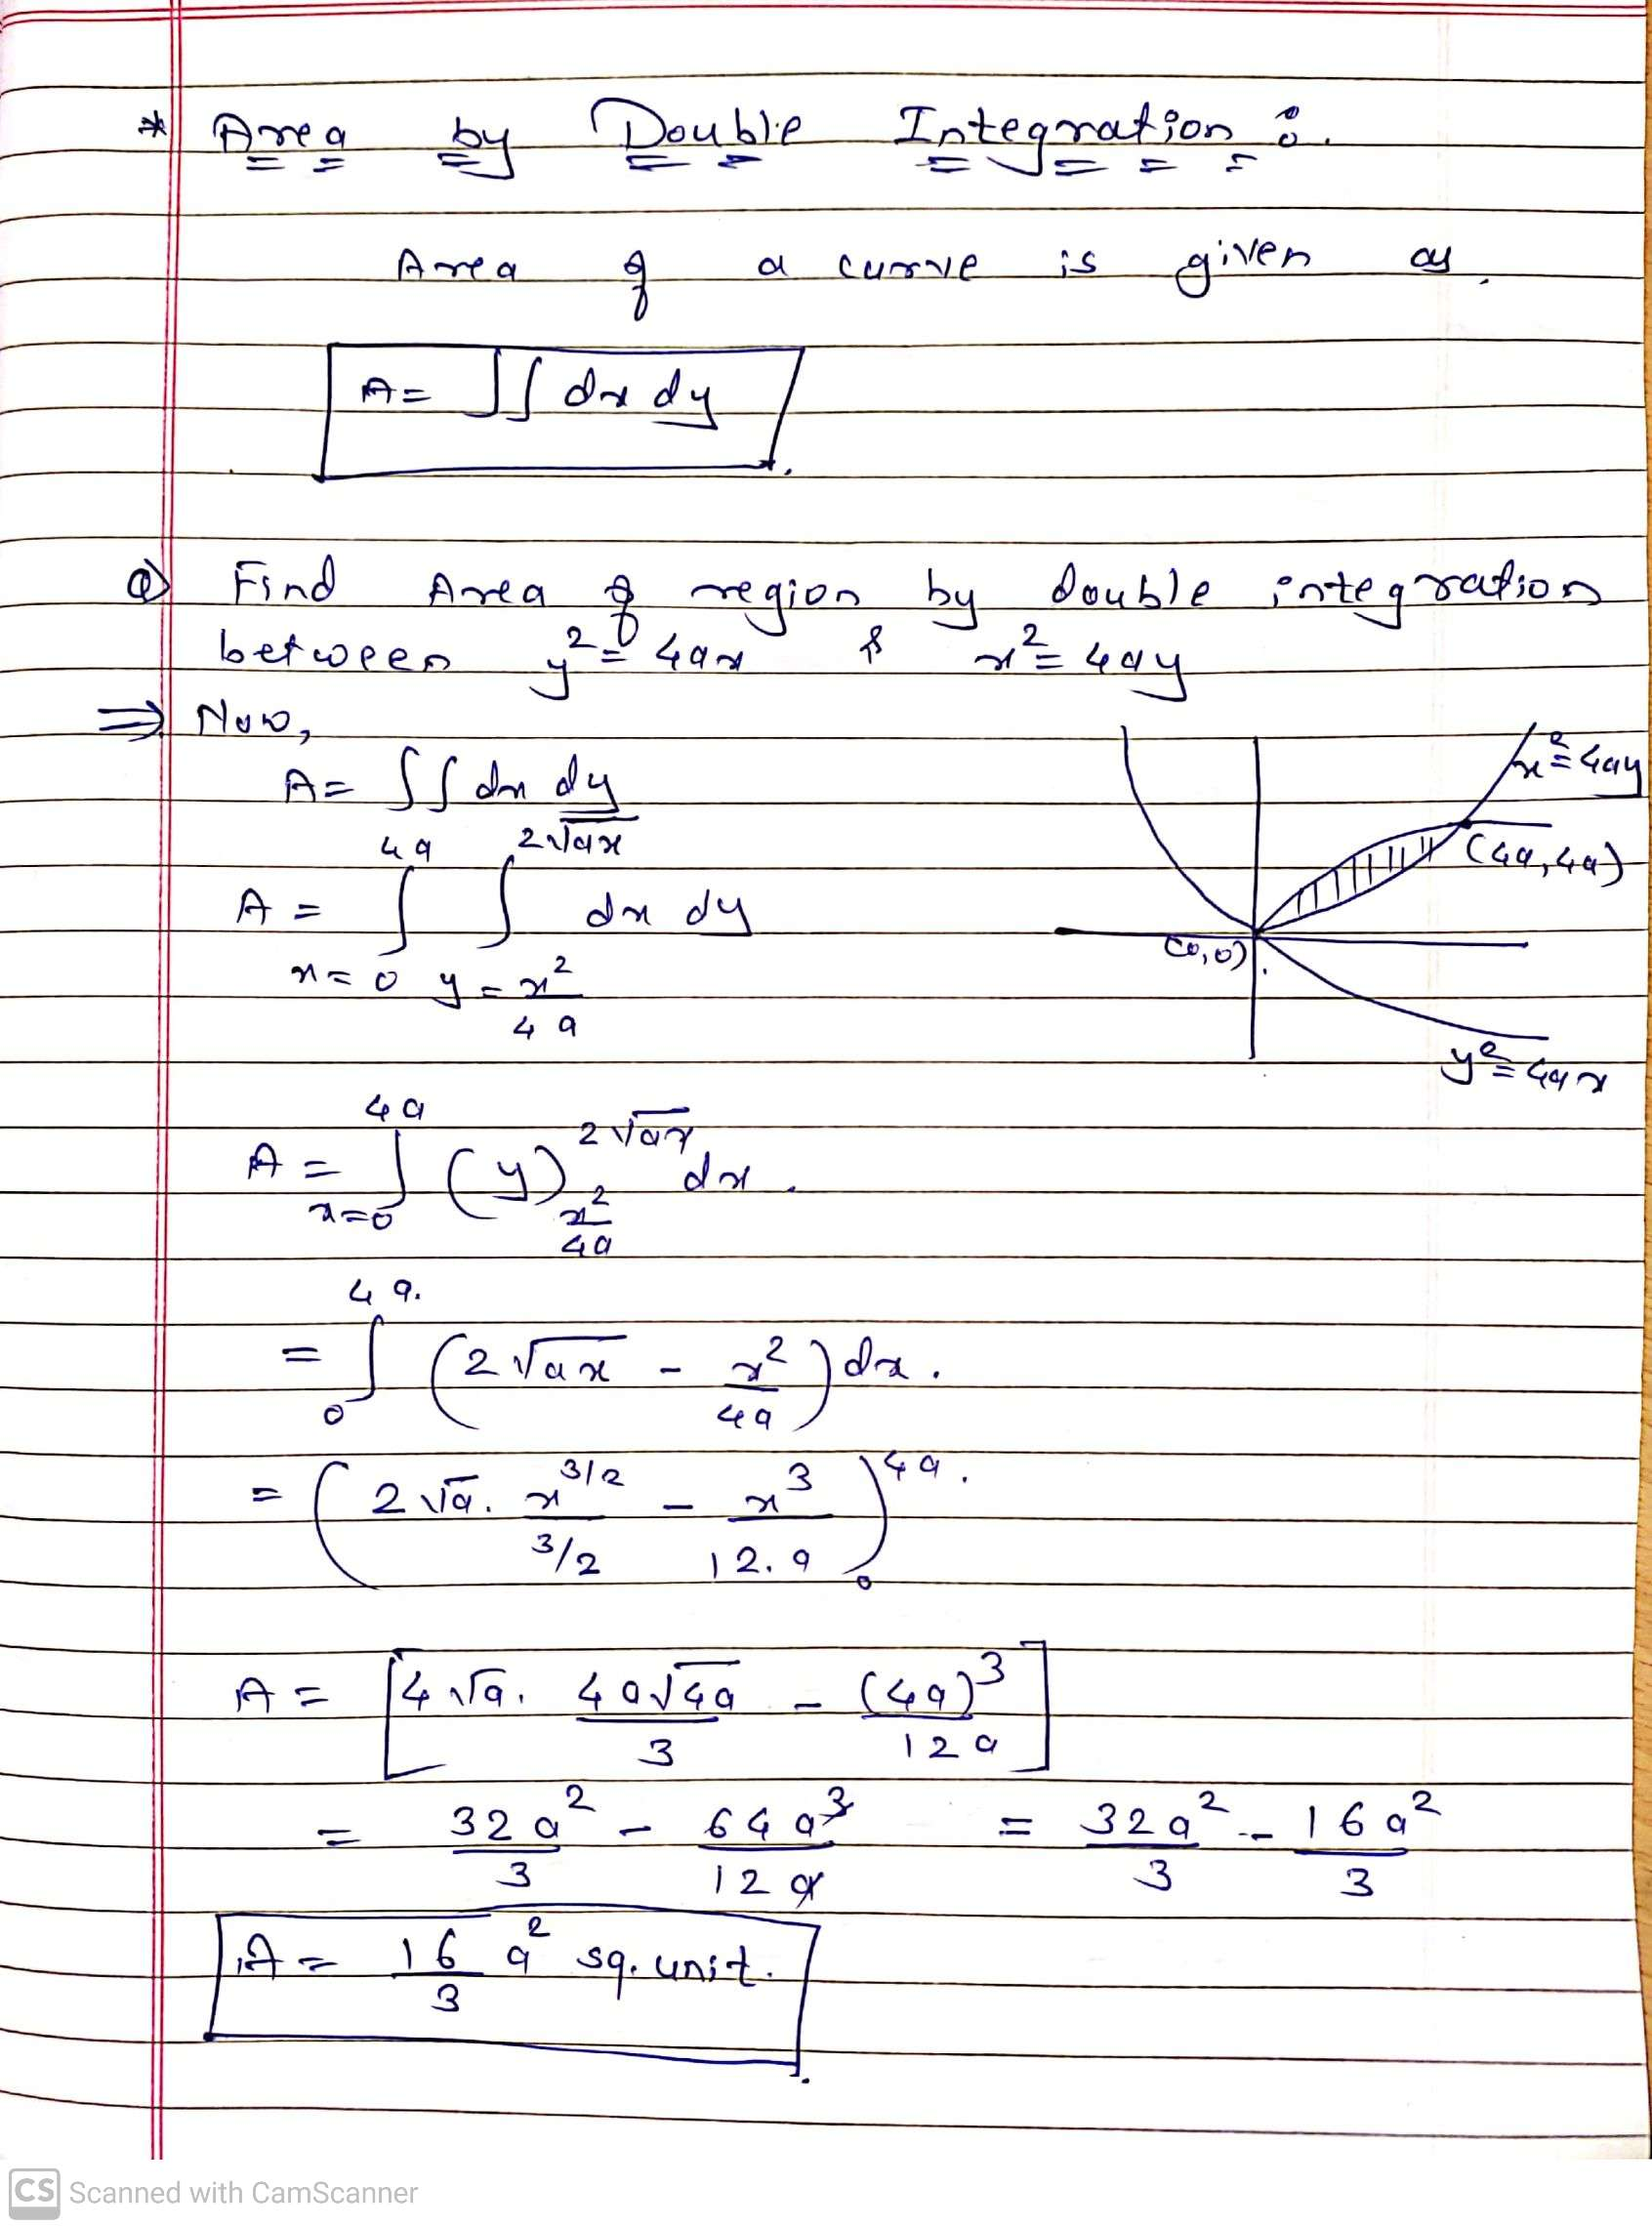 * Area by Double Integration :
Area of a curve is given as,
A = ∫∫ dx dy
Q) Find Area of region by double integration
between y² = 4ax & x² = 4ay
⇒ Now,
A = ∫∫ dx dy
A = ∫_{x=0}^{4a} ∫_{y=x²/4a}^{2√ax} dx dy
x² = 4ay
(4a, 4a)
(0,0)
y² = 4ax
A = ∫_{x=0}^{4a} (y)_{x²/4a}^{2√ax} dx.
= ∫_0^{4a.} (2√ax - x²/4a) dx.
= (2√a. x^{3/2}/3/2 - x³/12.a)_0^{4a.}
A = [4√a. 4a√4a/3 - (4a)³/12a]
= 32a²/3 - 64a³/12a = 32a²/3 - 16a²/3
A = 16/3 a² sq. unit.
CS Scanned with CamScanner